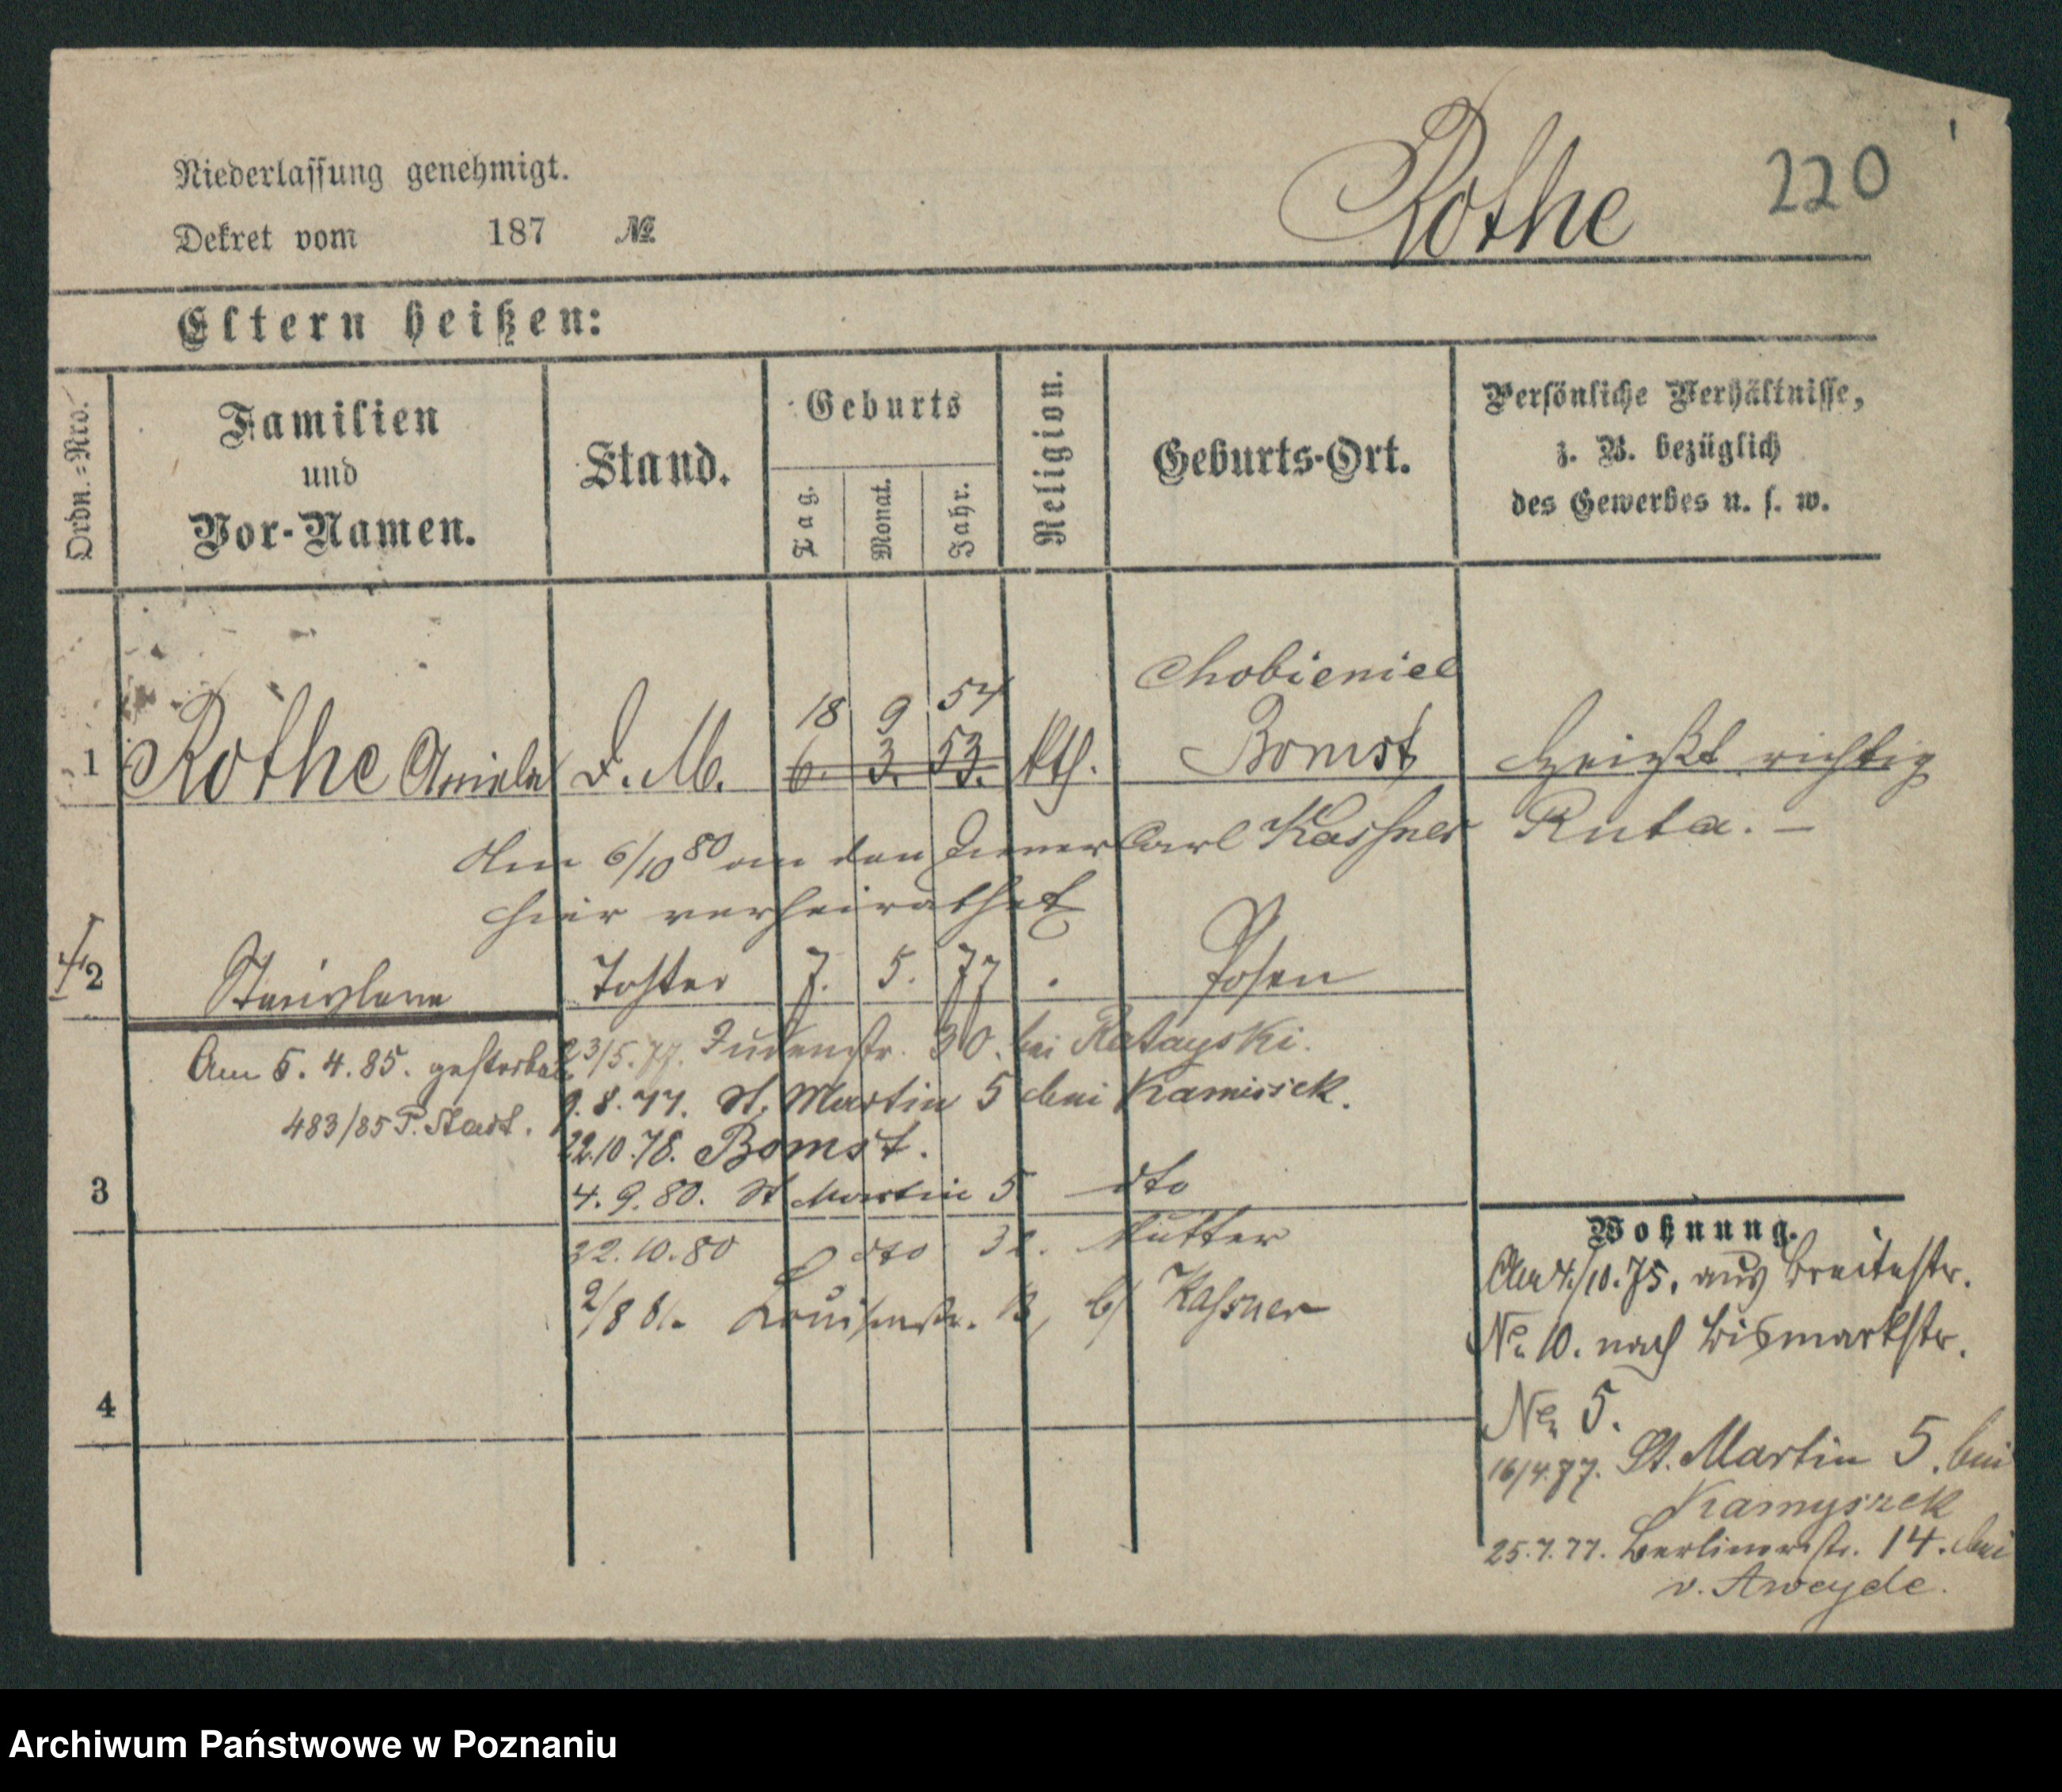 Niederlassung genehmigt.
Dekret vom 187 №
Rothe
220
Eltern heißen:
Ordn.=Nro.
Familien
und
Vor-Namen.
Stand.
Geburts
Tag.
Monat.
Jahr.
Religion.
Geburts-Ort.
Persönliche Verhältnisse,
z. B. bezüglich
des Gewerbes u. s. w.
Chobienice
18 9 54
1 Rothe Aniela D. M. 6. 3. 53. kth. Bomst heißt richtig
Ruta. –
Am 6/10 80 an den Diener Carl Kassner
hier verheirathet
2 Stanislava Tochter 7. 5. 77 Posen
Am 5. 4. 85. gestorben
483/85 P. Stadt.
23/5. 77. Judenstr. 30. bei Ratayski.
9. 8. 77. St. Martin 5 bei Kamissek.
22.10.78. Bomst.
3
4. 9. 80. St Martin 5 dto
22. 10. 80 dto Mutter
2/8 81. Louisenstr. b/ Kassner
4
Wohnung.
Am 4./10. 75. aus Breitestr.
No 10. nach Bismarkstr.
No 5.
16/4.77. St. Martin 5. bei
Kamyszek
25.7.77. Berlinerstr. 14. bei
v. Aweyde.
Archiwum Państwowe w Poznaniu